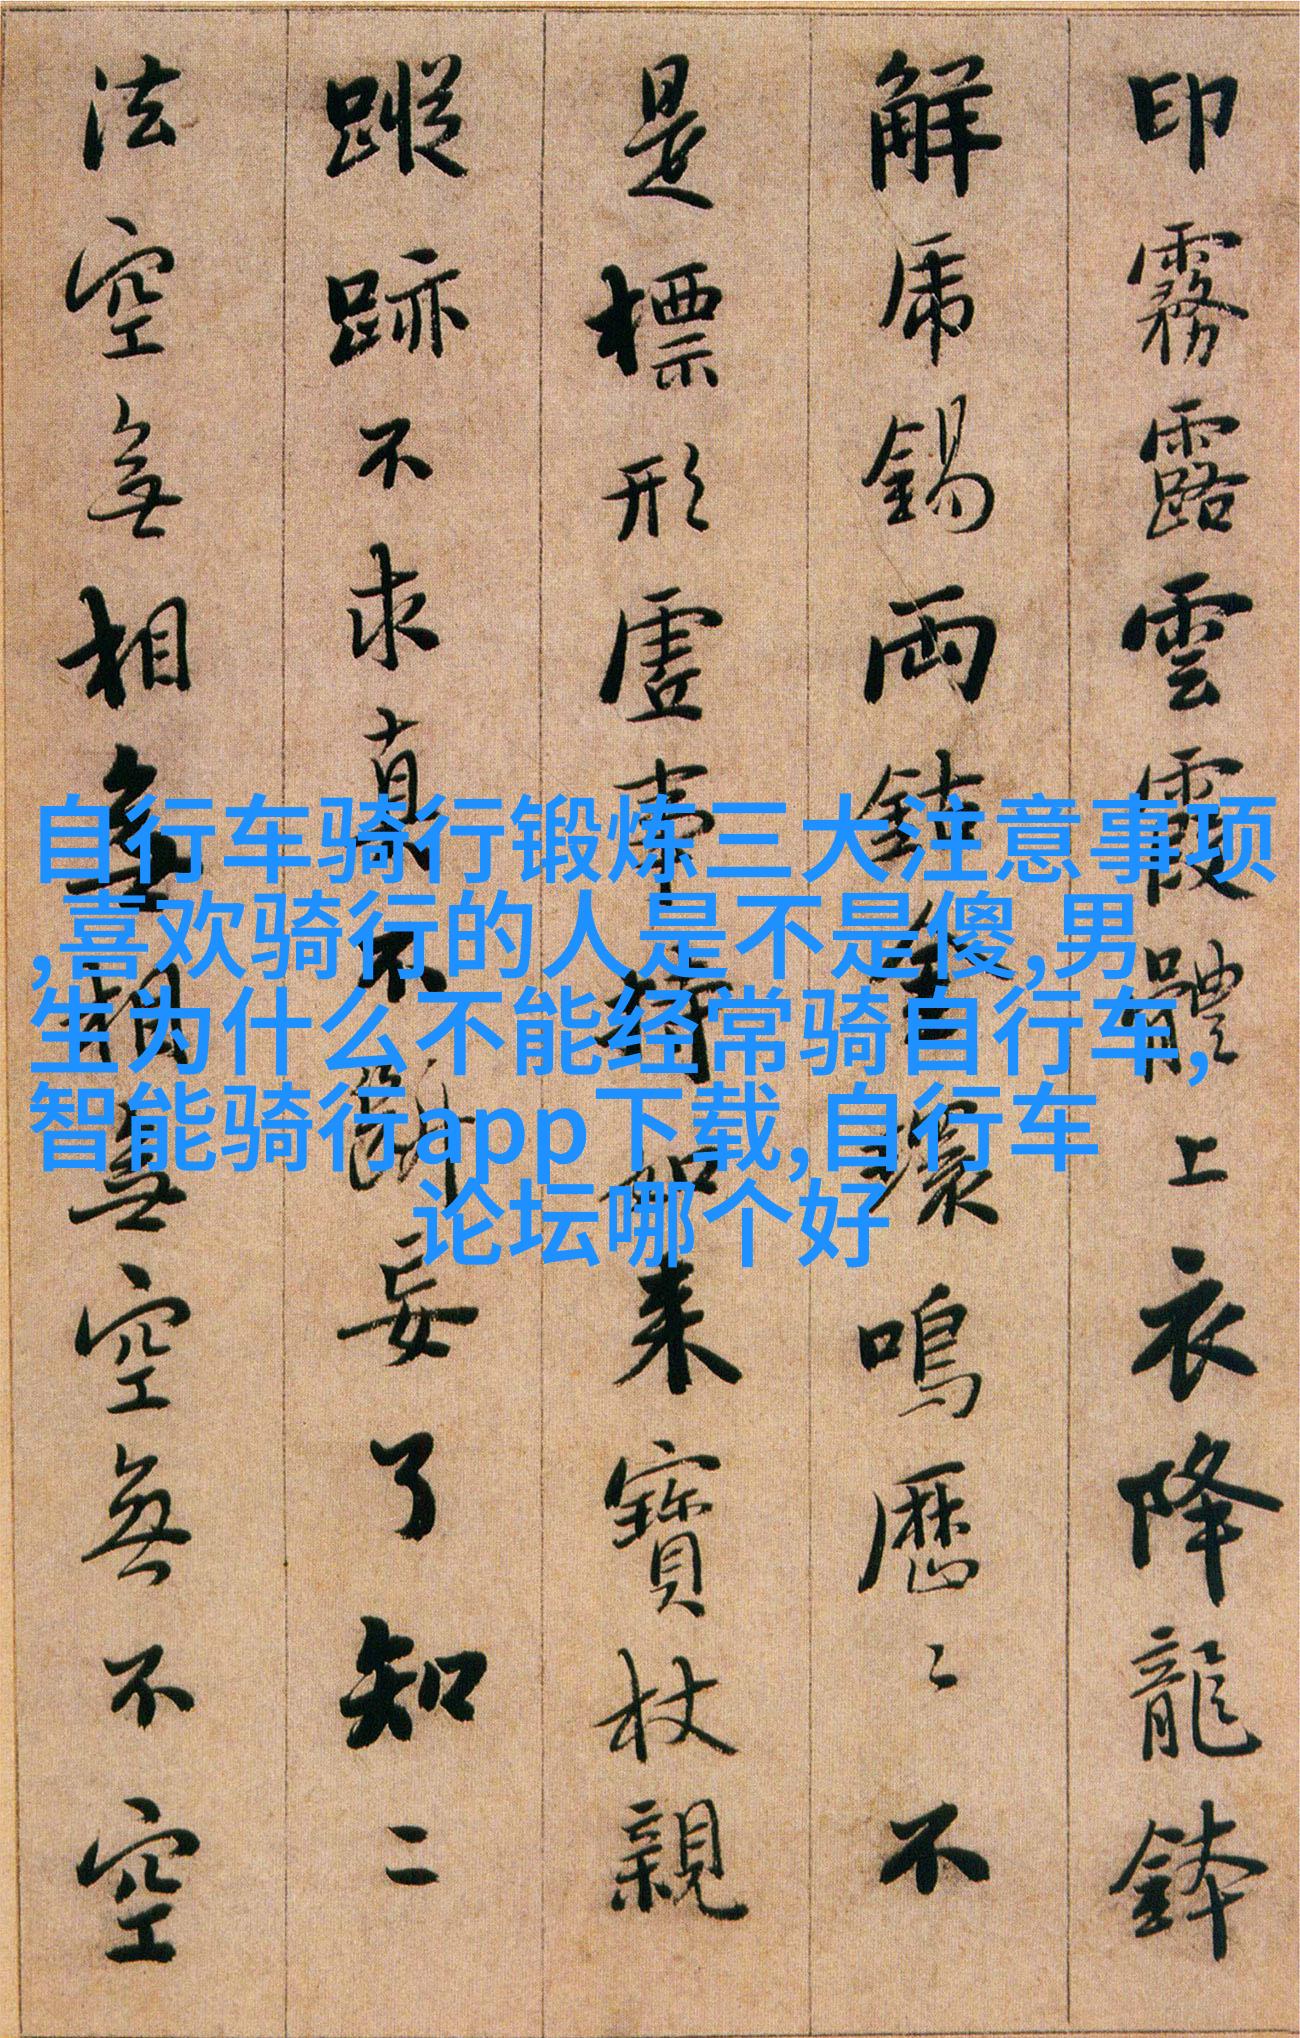 印霧露雲霞體上衣降龍鉢
解虎錫兩鈷金環鳴歷〻不
是標形虛事持如来寶杖親
蹤跡不求真不斷妄了知二
法空無相無相無空無不空
自行车骑行锻炼三大注意事项
,喜欢骑行的人是不是傻,男
生为什么不能经常骑自行车,
智能骑行app下载,自行车
论坛哪个好